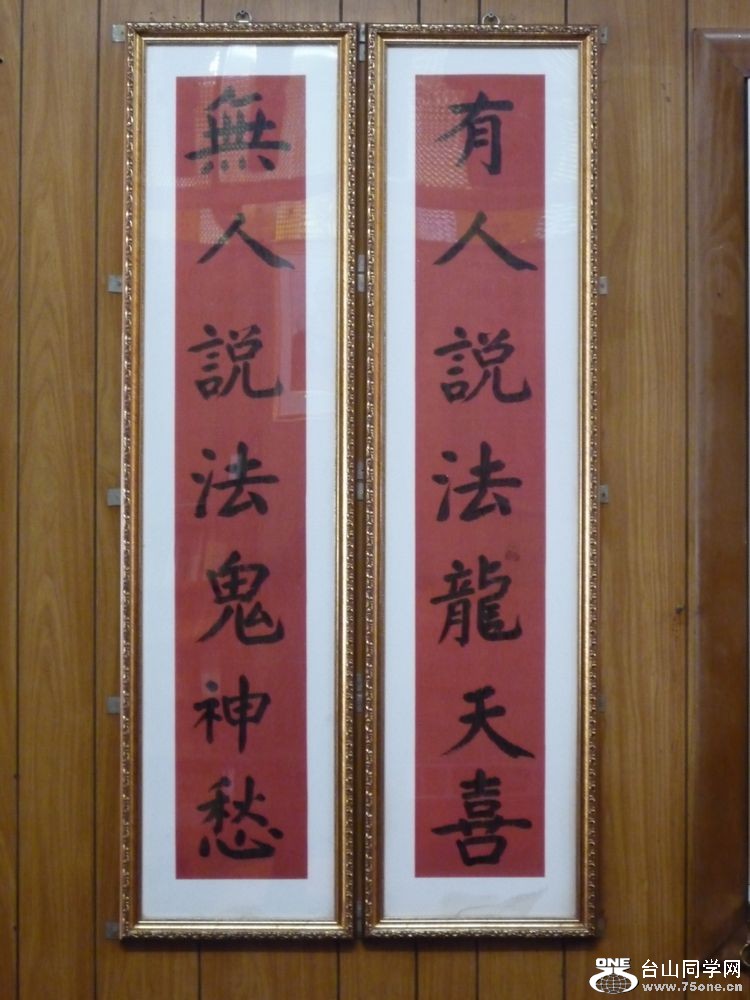 有人説法龍天喜
無人説法鬼神愁
ONE
台山同学网
www.75one.cn